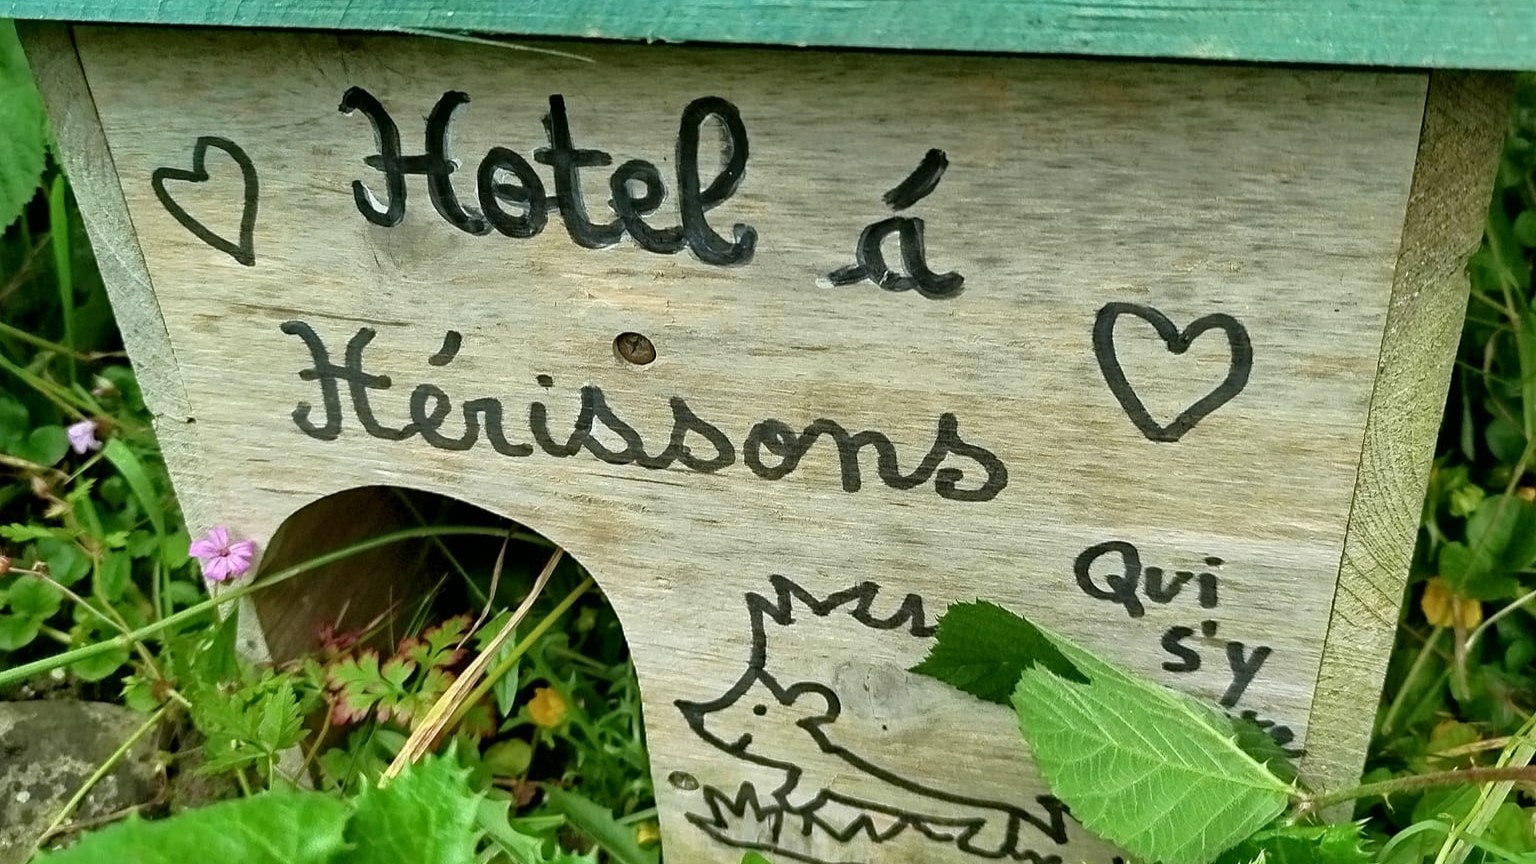 Hotel á
Hérissons
Qui
s'y